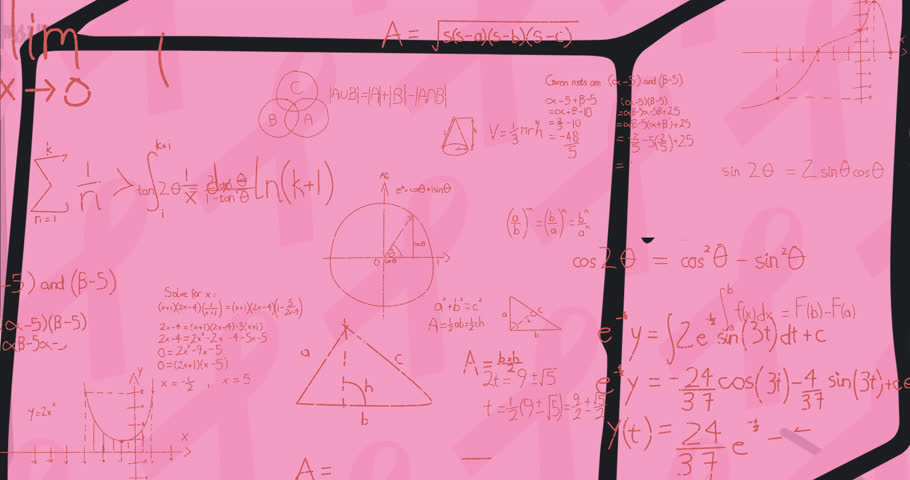 lim
x → 0
(
A = √s(s-a)(s-b)(s-c)
C
B A
|A∪B|=|A|+|B|-|A∩B|
V = 1/3 πr²h
Given roots are (α-5) and (β-5)
α-5+β-5
=α+β-10
= 2/5 -10
= -48/5
(α-5)(β-5)
=αβ-5α-5β+25
=αβ-5(α+β)+25
= -2/5 -5(2/5)+25
=
sin 2θ = 2 sinθ cosθ
k
Σ 1/n >
n=1
k+i
∫ 1/x
i
tan 2θ
ln(k+1)
e^iθ=cosθ+isinθ
0
(a/b)^-n = (b/a)^n = b^n/a^n
cos 2θ = cos²θ - sin²θ
-5) and (β-5)
α-5)(β-5)
αβ-5α-
Solve for x:
2x-4 = (x+1)(2x-4)-5(x+1)
2x-4 = 2x²-2x-4-5x-5
0 = 2x²-9x-5
0 = (2x+1)(x-5)
x = -1/2 , x = 5
a²+b²=c²
A=½ab=½ch
a
c
b
∫ f(x)dx = F(b)-F(a)
b
a
e y = ∫2e sin(3t)dt+c
a
c
h
b
A = b×h/2
2t = 9 ± √5
t = ½(9 ± √5) = 9/2 ± √5/2
e y = -24/37 cos(3t) - 4/37 sin(3t)+ce
y(t) = 24/37 e -
y
x
y=2x²
A =